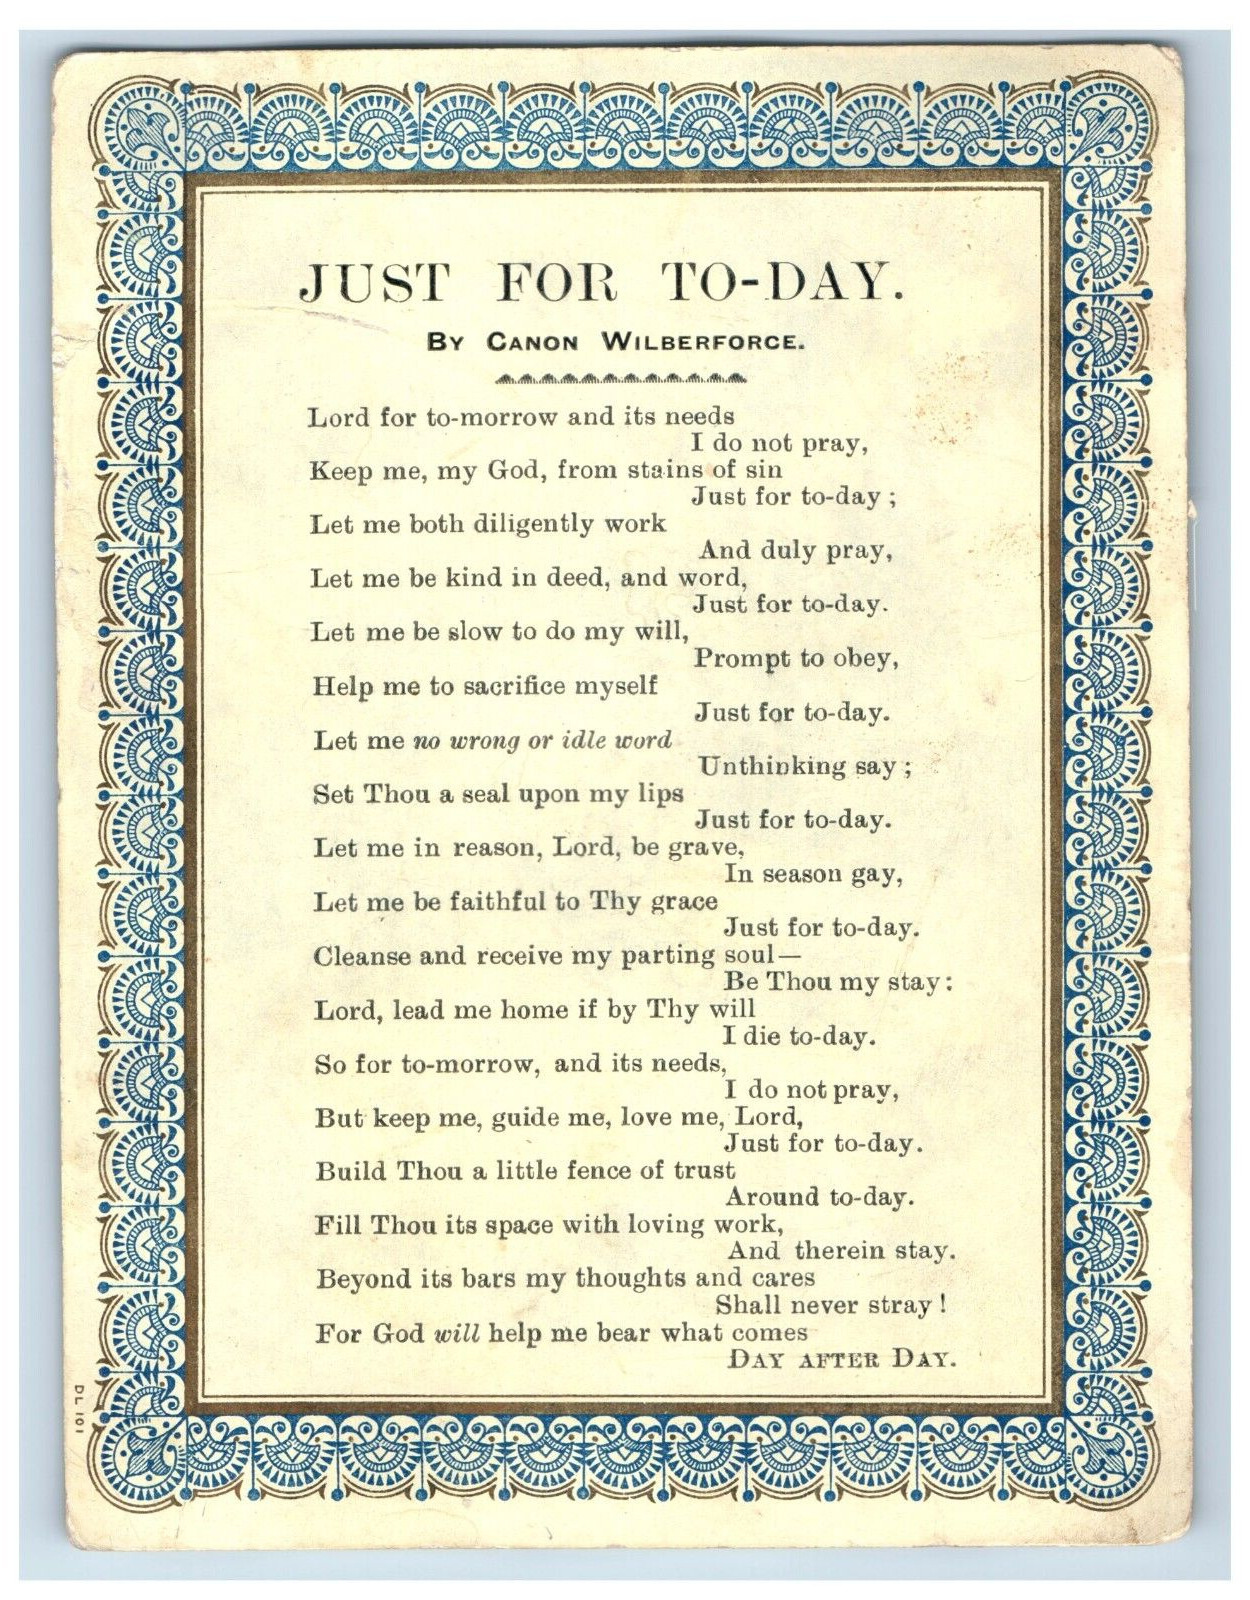 JUST FOR TO-DAY.
BY CANON WILBERFORCE.
Lord for to-morrow and its needs
I do not pray,
Keep me, my God, from stains of sin
Just for to-day ;
Let me both diligently work
And duly pray,
Let me be kind in deed, and word,
Just for to-day.
Let me be slow to do my will,
Prompt to obey,
Help me to sacrifice myself
Just for to-day.
Let me no wrong or idle word
Unthinking say ;
Set Thou a seal upon my lips
Just for to-day.
Let me in reason, Lord, be grave,
In season gay,
Let me be faithful to Thy grace
Just for to-day.
Cleanse and receive my parting soul—
Be Thou my stay:
Lord, lead me home if by Thy will
I die to-day.
So for to-morrow, and its needs,
I do not pray,
But keep me, guide me, love me, Lord,
Just for to-day.
Build Thou a little fence of trust
Around to-day.
Fill Thou its space with loving work,
And therein stay.
Beyond its bars my thoughts and cares
Shall never stray !
For God will help me bear what comes
DAY AFTER DAY.
DL 101